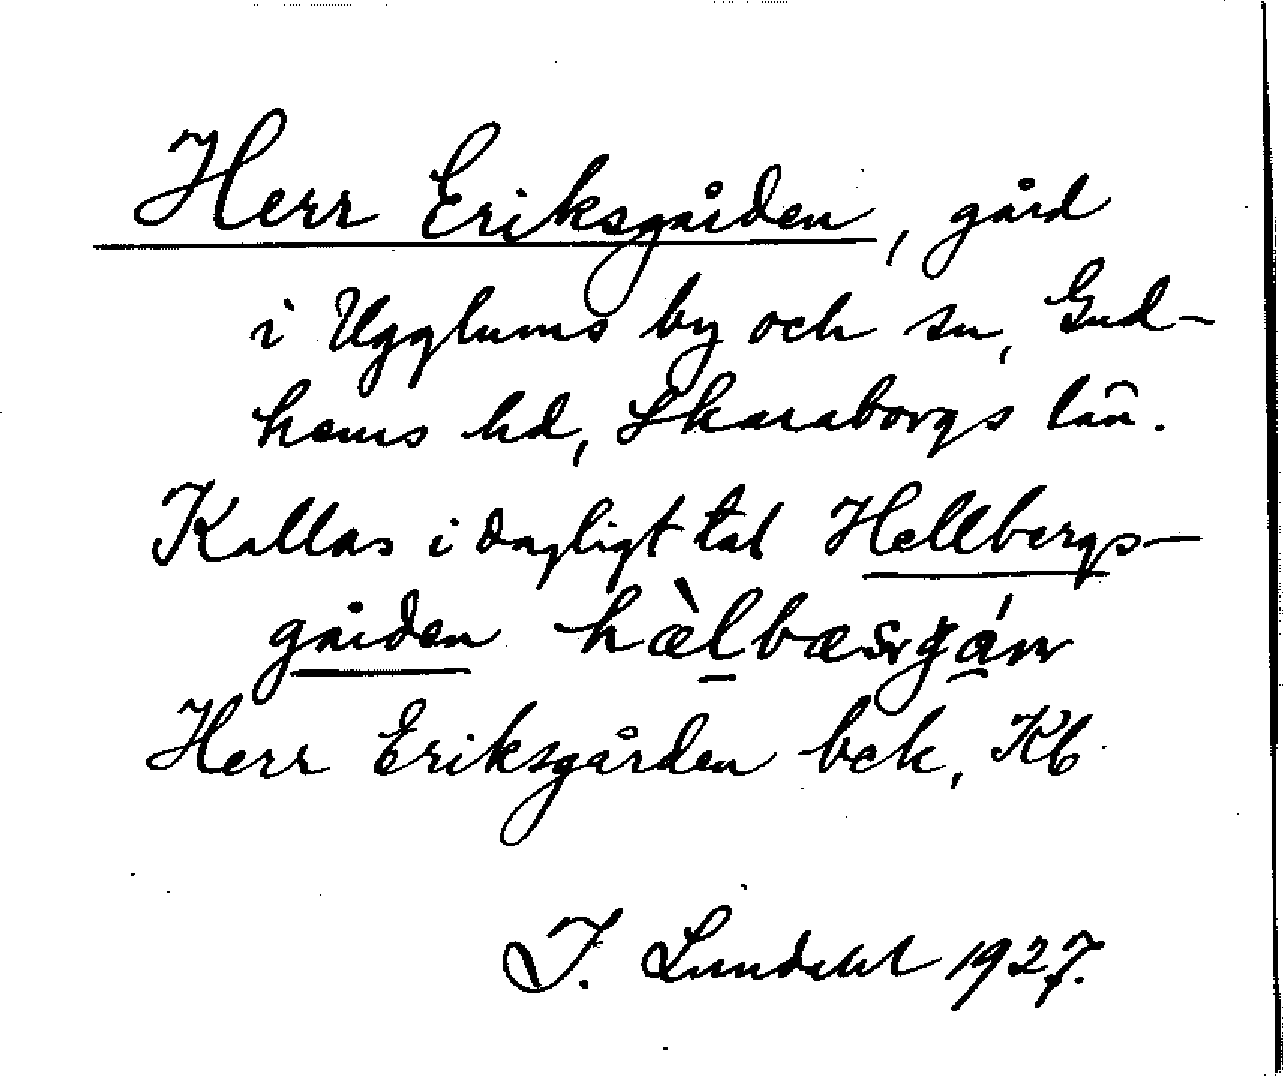 Herr Eriksgården, gård
i Ugglums by och sn, Gud-
hems hd, Skaraborgs län.
Kallas i dagligt tal Hellbergs-
gården
Herr Eriksgården bek, Kb
J. Lundahl 1927.